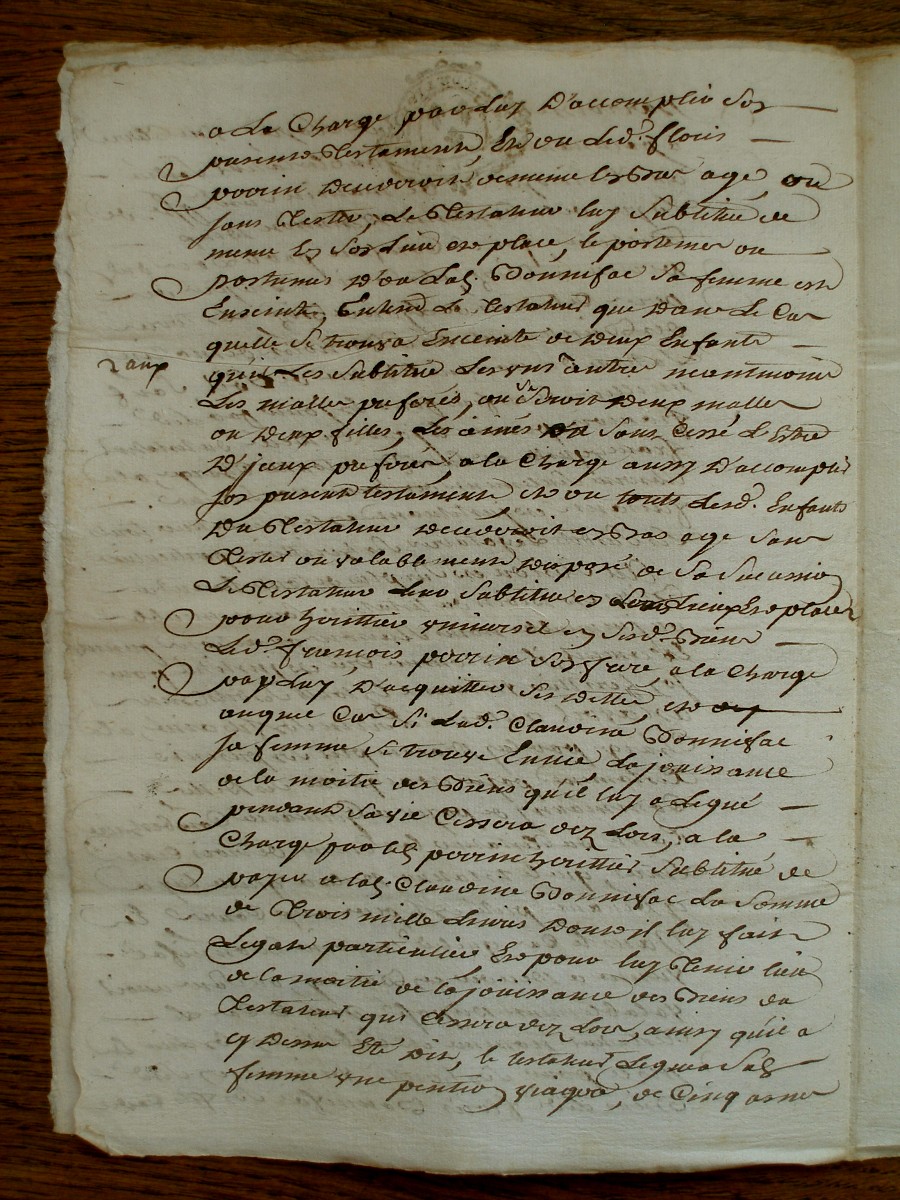 a La Charge par Luy D'accomplir son
present Testament, Et ou Led.t floris
perrin decederoit de meme En bas age, ou
sans Tester, Le Testateur luy Substitue de
meme En son Lieu et place, le posteme ou
postumes d'ou Lad. Bonnifac Sa femme est
Enceinte, Entend Le Testateur que dans Le Cas
quelle Se trouva Enceinte de deux Enfants
2 aux
quil Les Substitue Les uns aux autres neantmoins
Les malles preferés, ou Se Seroit deux malles
ou deux filles, Les ainés Sans Cesse L'Estre
D'jceux preferés, a la Charge aussy D'accomplir
son present testament et ou touts Lesd. Enfants
Du Testateur decederoit en bas age sans
Tester ou valablement disposé de Sa Succession
Le Testateur Leur Substitue en Leurs Lieux Et places
pour heritier universel en Sesd. Biens
Led.t françois perrin Son frere, a la Charge
par Luy D'acquitter Ses dettes, et
auquel Cas Si Lad. Claudine Bonnifac
Sa femme Se trouve En vie La jouissance
de la moitié des Biens qu'il luy a Legué
pendant Sa vie Cessera dez Lors, a la
Charge par led. perrin heritier Substitué de
payer a lad. Claudine Bonnifac La Somme
de Trois mille Livres dont il luy fait
Legat particulier Et pour luy Tenir lieu
de la moitié de la jouissance des Biens du
Testateur qui Cessera dez Lors, ainsy qu'il a
cy dessus Eté dit, le testateur Legue a Sad.
femme une pention viagere, de Cinq asnés